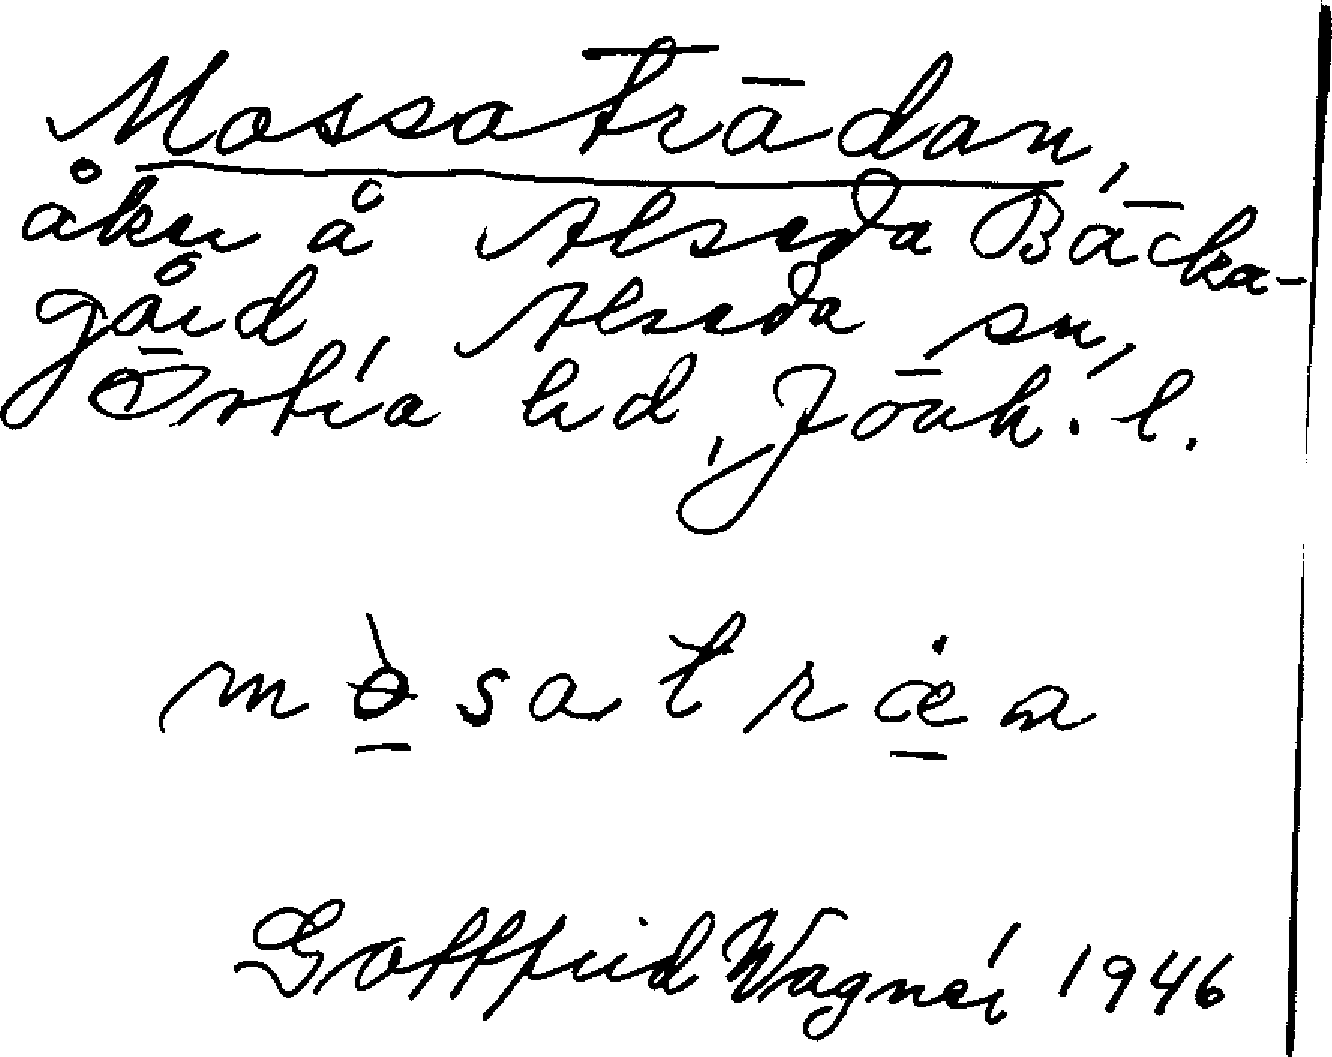 Mossaträdan,
åker å Alseda Bäcka-
gård, Alseda sn,
Östra hd, Jönk. l.
mòsatræa
Gottfrid Wagnér 1946